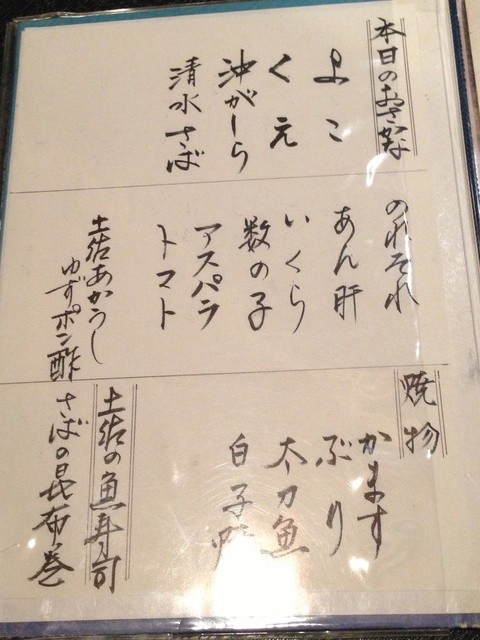 本日のおさかな
よこ
くえ
沖がしら
清水さば
のれそれ
あん肝
いくら
数の子
アスパラ
トマト
土佐あかうし
ゆずポン酢
焼物
かます
ぶり
太刀魚
白子
土佐の魚寿司
さばの昆布巻